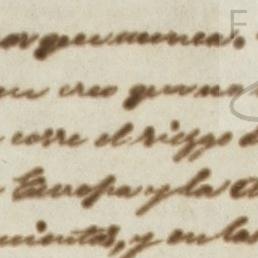 que nunca.
creo que no
corre el riesgo
Europa y la
mientos, y en las